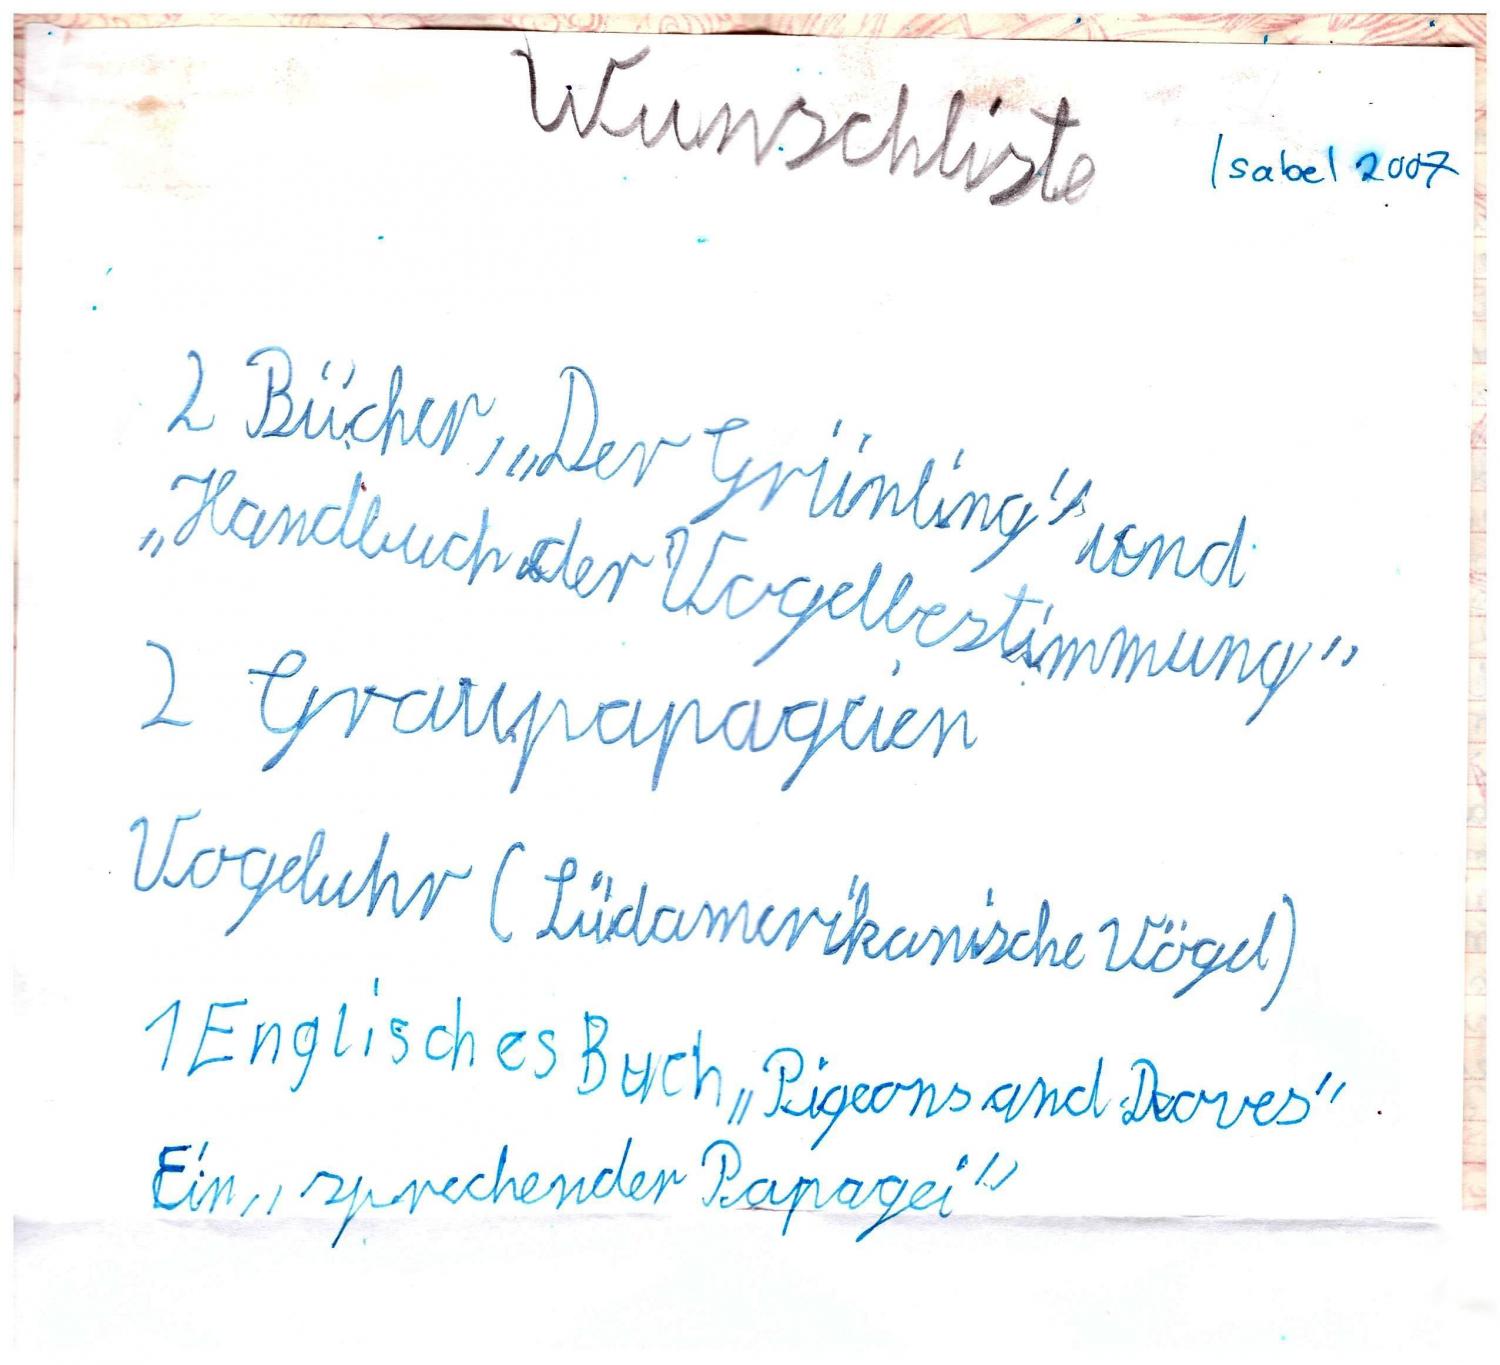 Wunschliste
Isabel 2007
2 Bücher, „Der Grünling" und
„Handbuch der Vogelbestimmung"
2 Graupapageien
Vogeluhr (Südamerikanische Vögel)
1 Englisches Buch „Pigeons and Doves"
Ein „sprechender Papagei"